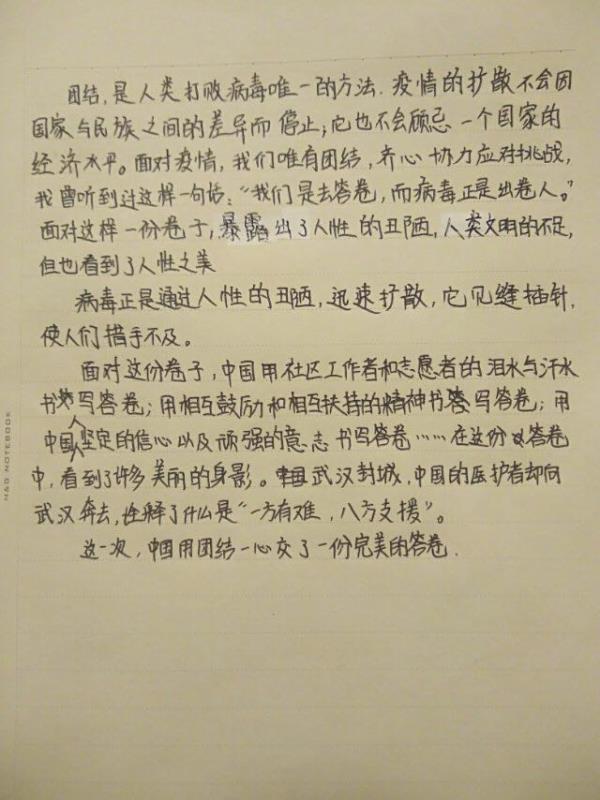 团结,是人类打败病毒唯一的方法.疫情的扩散不会因
国家与民族之间的差异而停止;它也不会顾忌一个国家的
经济水平。面对疫情,我们唯有团结,齐心协力应对挑战,
我曾听到过这样一句话:“我们是去答卷,而病毒正是出卷人。”
面对这样一份卷子,暴露出了人性的丑陋,人类文明的不足,
但也看到了人性之美
病毒正是通过人性的丑陋,迅速扩散,它见缝插针,
使人们措手不及。
面对这份卷子,中国用社区工作者和志愿者的泪水与汗水
书写答卷;用相互鼓励和相互扶持的精神书写答卷;用
中国人坚定的信心以及顽强的意志书写答卷……在这份答卷
中,看到了许多美丽的身影。武汉封城,中国的医护者却向
武汉奔去,诠释了什么是“一方有难,八方支援”。
这一次,中国用团结一心交了一份完美的答卷.
M&G NOTEBOOK